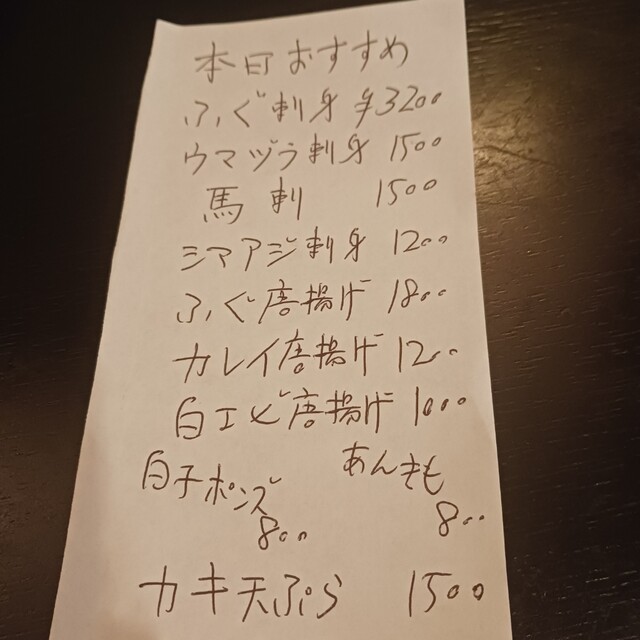 本日おすすめ
ふぐ刺身 ¥3200
ウマヅラ刺身 1500
馬刺 1500
シマアジ刺身 1200
ふぐ唐揚げ 1800
カレイ唐揚げ 1200
白エビ唐揚げ 1000
白子ポンズ 800
あんきも 800
カキ天ぷら 1500